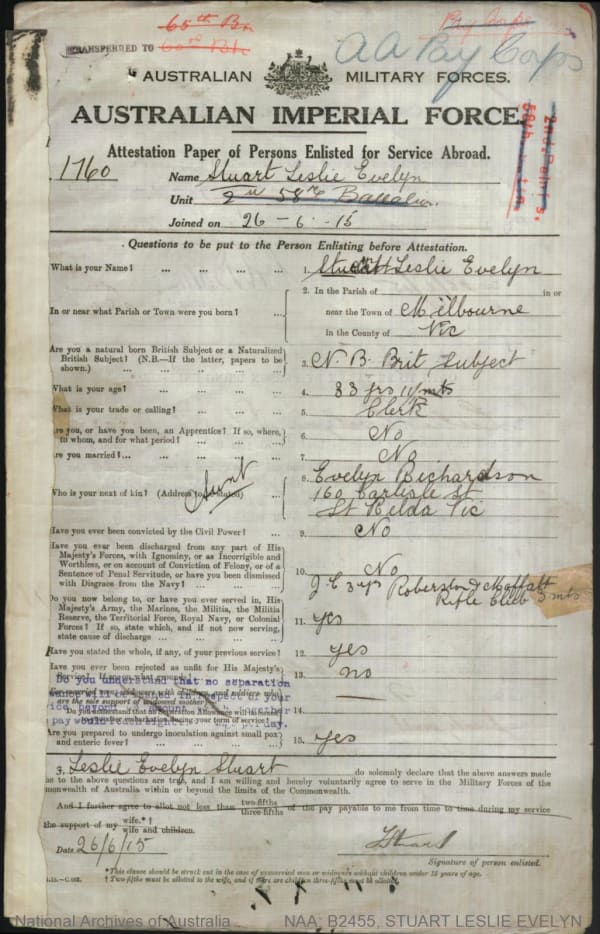 65th Bn
TRANSFERRED TO 60th Bn
Pay Corps
A A Pay Corps
AUSTRALIAN MILITARY FORCES.
AUSTRALIAN IMPERIAL FORCE.
Attestation Paper of Persons Enlisted for Service Abroad.
1760
Name Stuart Leslie Evelyn
Unit 58th Battalion.
Joined on 26-6-15
Questions to be put to the Person Enlisting before Attestation.
What is your Name? ... ... ... ... 1. Stuart Leslie Evelyn
2. In the Parish of in or
In or near what Parish or Town were you born? ... near the Town of Milbourne
in the County of Vic
Are you a natural born British Subject or a Naturalized
British Subject? (N.B.—If the latter, papers to be
shown.) ... ... ... 3. N. B. Brit Subject
What is your age? ... ... ... ... 4. 33 yrs 11 mts
What is your trade or calling? ... ... ... 5. Clerk
Are you, or have you been, an Apprentice? If so, where,
to whom, and for what period? ... ... ... 6. No
Are you married? ... ... ... ... 7. No
Who is your next of kin? (Address to be stated) ... Aunt 8. Evelyn Richardson
160 Carlisle St
St Kilda Vic
Have you ever been convicted by the Civil Power? ... 9. No
Have you ever been discharged from any part of His
Majesty's Forces, with Ignominy, or as Incorrigible and
Worthless, or on account of Conviction of Felony, or of a
Sentence of Penal Servitude, or have you been dismissed
with Disgrace from the Navy? ... ... ... 10. No
Do you now belong to, or have you ever served in, His
Majesty's Army, the Marines, the Militia, the Militia
Reserve, the Territorial Force, Royal Navy, or Colonial
Forces? If so, state which, and if not now serving,
state cause of discharge ... ... ... 11. yes
3 yrs Robertson & Moffatt
Rifle Club 3 mts
Have you stated the whole, if any, of your previous service? 12. yes
Have you ever been rejected as unfit for His Majesty's
Service? 13. no
Do you understand that no separation
are the sole support of widowed mother)
14. —
Are you prepared to undergo inoculation against small pox
and enteric fever? ... ... ... 15. yes
Leslie Evelyn Stuart do solemnly declare that the above answers made
to the above questions are true, and I am willing and hereby voluntarily agree to serve in the Military Forces of the
Commonwealth of Australia within or beyond the limits of the Commonwealth.
And I further agree to allot not less than two-fifths three-fifths of the pay payable to me from time to time during my service
the support of my wife.*† wife and children.
Date 26/6/15
LStuart
Signature of person enlisted.
*This clause should be struck out in the case of unmarried men or widowers without children under 18 years of age.
† Two-fifths must be allotted to the wife, and if there are children three-fifths must be allotted.
National Archives of Australia NAA: B2455, STUART LESLIE EVELYN